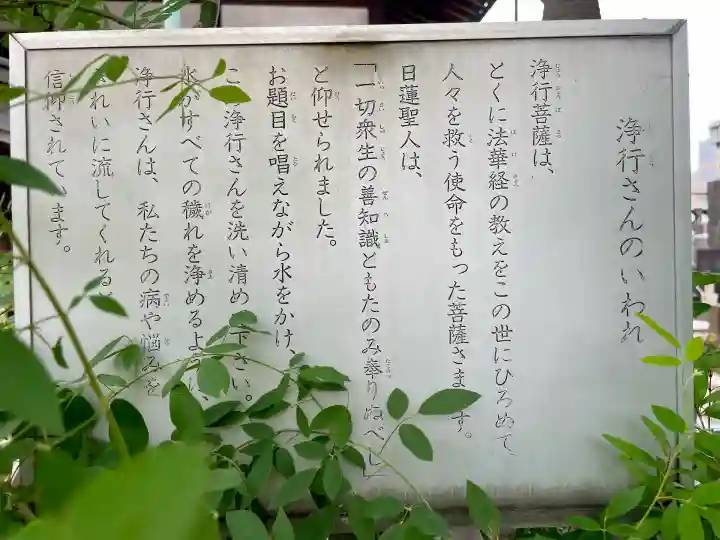 浄行さんのいわれ
浄行菩薩は、
とくに法華経の教えをこの世にひろめて、
人々を救う使命をもった菩薩さま す。
日蓮聖人は、
「一切衆生の善知識ともたのみ奉りぬべし」
と仰せられました。
お題目を唱えながら水をかけ、
こ 浄行さんを洗い清め 下さい。
水がすべての穢れを浄めるように、
浄行さんは、私たちの病や悩みを
れいに流してくれる
信仰されています。